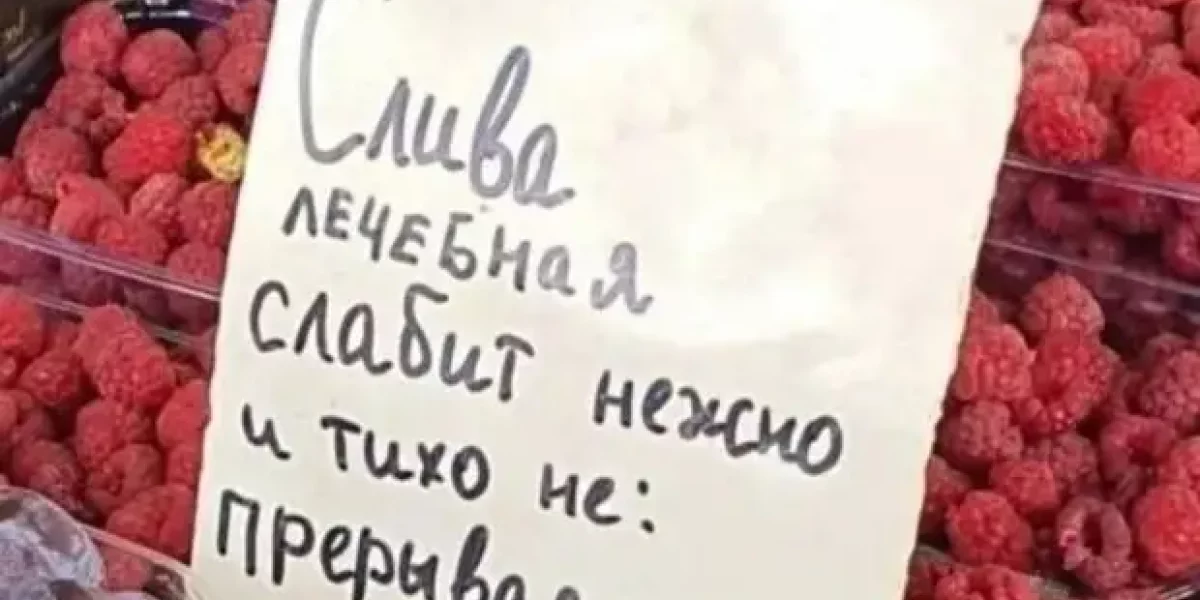 Слива
лечебная
слабит нежно
и тихо не:
прерывая